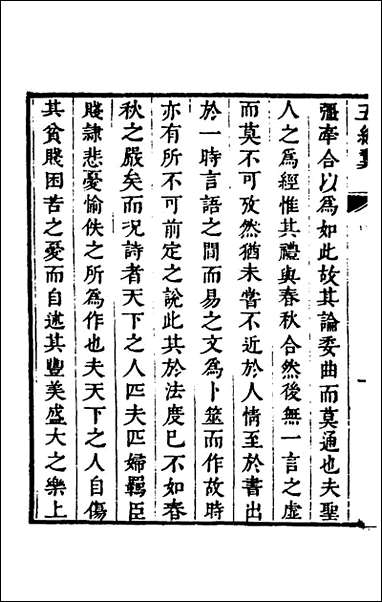 五經
彊牽合以爲如此故其論委曲而莫通也夫聖
人之爲經惟其禮與春秋合然後無一言之虛
而莫不可攷然猶未嘗不近於人情至於書出
於一時言語之間而易之文爲卜筮而作故時
亦有所不可前定之說此其於法度已不如春
秋之嚴矣而況詩者天下之人匹夫匹婦羈臣
賤隷悲憂愉佚之所爲作也夫天下之人自傷
其貧賤困苦之憂而自述其豐美盛大之樂上